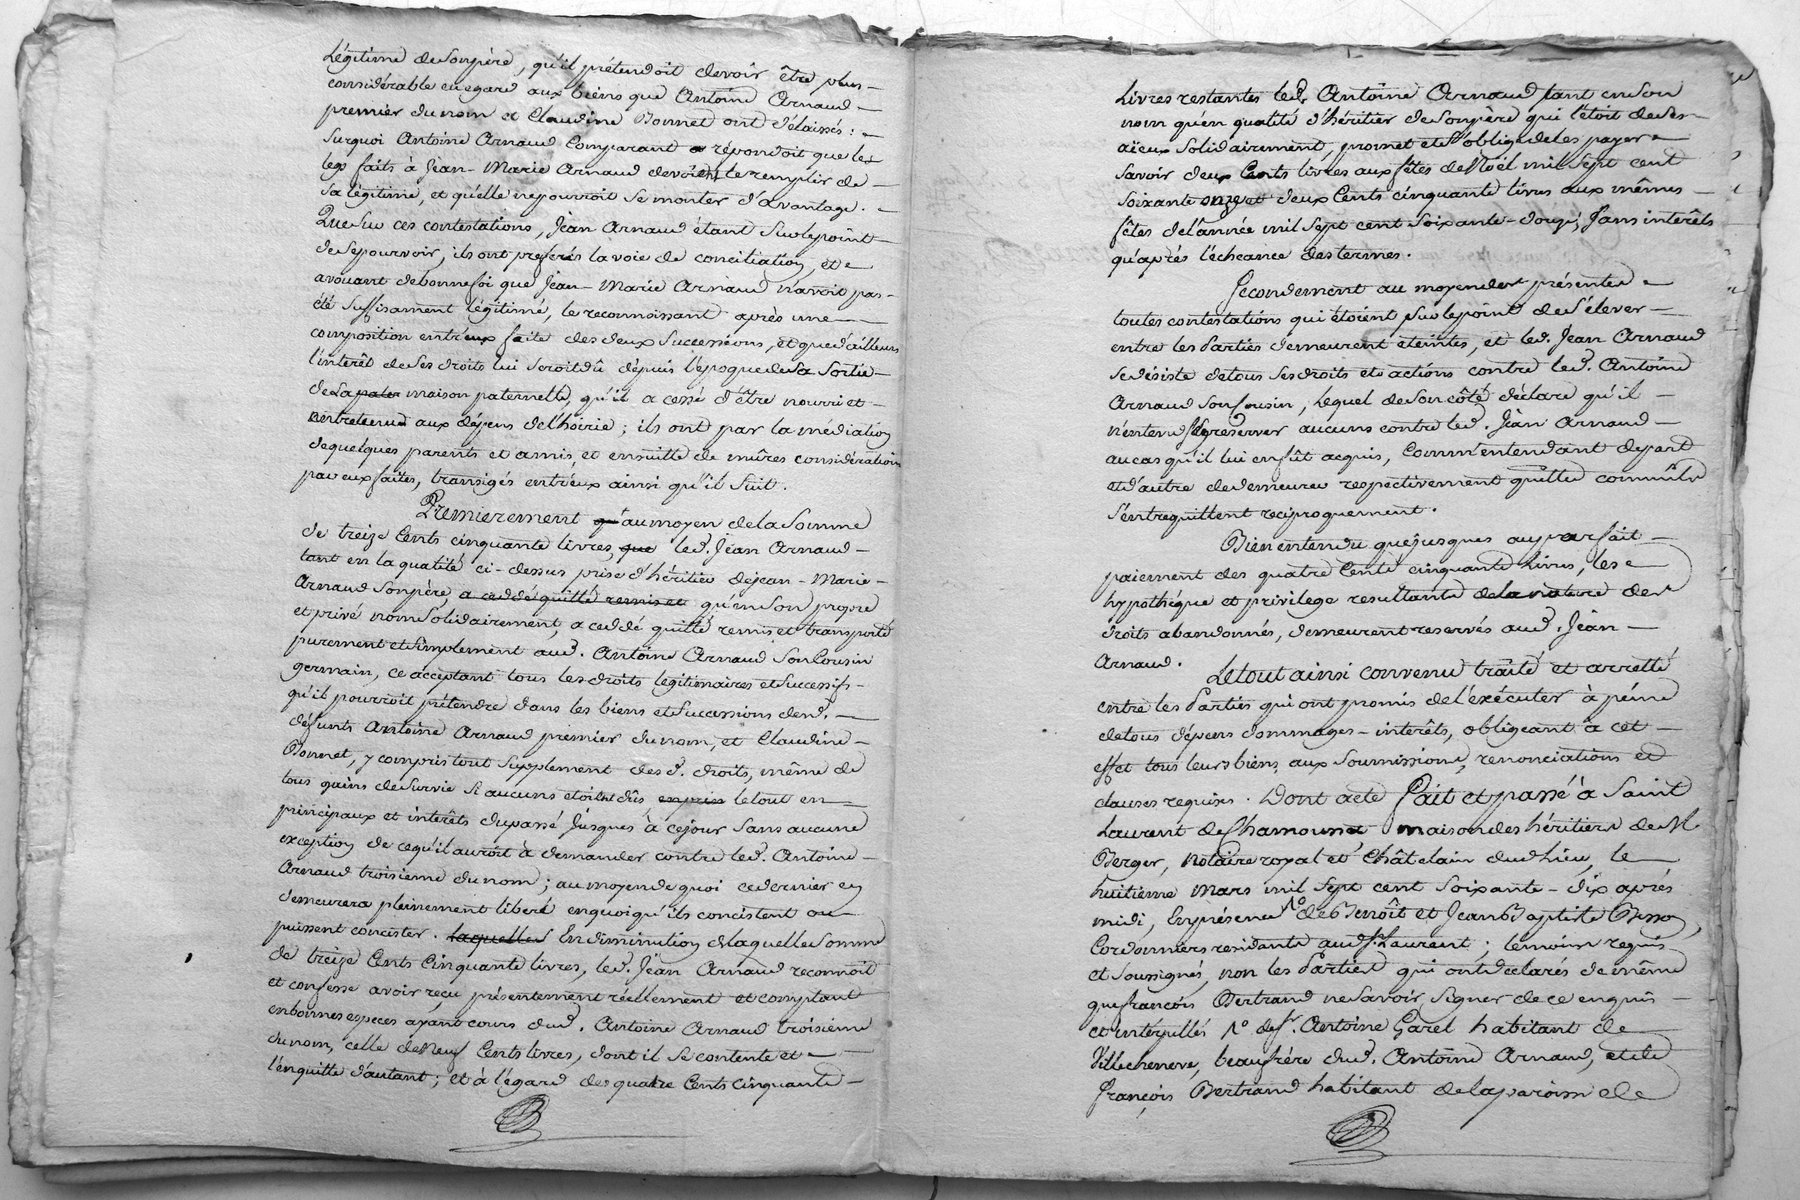 Légitime de Son père, qu'il prétendoit devoir être plus -
considérable eu egard aux biens que Antoine Arnaud -
premier du nom et Claudine Bonnet ont délaissés : -
Surquoi Antoine Arnaud Comparant répondoit que les
legs faits à Jean-Marie Arnaud devoient le remplir de -
Sa légitime, et qu'elle ne pourroit se monter d'avantage. -
Que Sur ces contestations, Jean Arnaud étant Sur le point -
de Se pourvoir, ils ont preferés la voie de conciliation, et -
avouant de bonne foi que Jean-Marie Arnaud n'avoit pas -
été Suffisament légitimé, le reconnoissant après une -
composition entr'eux faite des deux Successions, et que d'ailleurs
l'intérêt de Ses droits lui Seroit dû depuis l'époque de Sa Sortie -
de La pater maison paternelle, qu'il a cessé d'être nourri et -
entretenu aux dépens de l'hoirie ; ils ont par la médiation
de quelques parents et amis, et ensuitte de mûres considérations
par eux faites, transigés entr'eux ainsi qu'il Suit.
Premierement qu' au moyen de la Somme
de treize Cents cinquante livres, que led. Jean Arnaud -
tant en la qualité ci-dessus prise d'héritier de Jean-Marie -
Arnaud Son père, a cedé quitté remis et qu'en Son propre
et privé nom Solidairement, a ceddé quitté remis et transporté
purement et Simplement aud. Antoine Arnaud Son Cousin
germain, ce acceptant tous les droits legitimaires et Successifs -
qu'il pourroit prétendre dans les biens et Successions desd. -
défunts Antoine Arnaud premier du nom, et Claudine -
Bonnet, y compris tout Supplement desd. droits, même de
tous gains de Survie Si aucuns etoient dûs, en prin le tout en -
principaux et intérêts du passé Jusques à ce jour Sans aucune
exception de ce qu'il auroit à demander contre led. Antoine -
Arnaud troisieme du nom ; au moyen de quoi ce dernier en
demeurera pleinement liberé en quoi qu'ils concistent ou -
puissent concister. laquelles En diminution de laquelle Somme
de treize Cents Cinquante livres, led. Jean Arnaud reconnoit
et confesse avoir reçu présentement réellement et comptant
en bonnes especes ayant cours dud. Antoine Arnaud troisieme
du nom, celle de Neuf Cents livres, dont il Se contente et -
l'enquitte d'autant ; et à l'égard des quatre Cents cinquante -
Livres restantes led. Antoine Arnaud tant en Son
nom qu'en qualité d'héritier de Son père qui l'étoit de Ses -
aïeux Solidairement, promet et S'oblige de les payer -
Savoir deux Cents livres aux fêtes de Noël mil Sept cent
Soixante onze et deux Cents cinquante livres aux mêmes -
fêtes de l'année mil Sept cent Soixante-douze, Sans intérêts
qu'après l'écheance des termes.
Secondement au moyen des présentes -
toutes contestations qui étoient Sur le point de S'élever -
entre les Parties demeurent éteintes, et led. Jean Arnaud
Se désiste de tous Ses droits et actions contre led. Antoine
Arnaud Son Cousin, Lequel de Son côté déclare qu'il -
n'entend Se reserver aucuns contre led. Jean Arnaud -
au cas qu'il lui en fût acquis, Comm'entendant de part
et d'autre de demeurer respectivement quittes comm'ils
S'entrequittent reciproquement.
Bien entendu que jusques au parfait -
paiement des quatre Cents cinquante Livres, les -
hypothèque et privilege resultants de la nature des
droits abandonnés, demeurent reservés aud. Jean -
Arnaud.
Le tout ainsi convenu traité et arretté
entre les Parties qui ont promis de l'exécuter à peine
de tous dépens dommages-intérêts, obligeant à cet -
effet tous leurs biens, aux Soumissions, renonciations et
clauses requises. Dont acte Fait et passé à Saint
Laurent de Chamousset maison des héritiers de Me
Berger, Notaire royal et Châtelain dud. Lieu, le -
huitieme Mars mil Sept cent Soixante-dix après
midi, En présence 1o de Benoît et Jean Baptiste Besson,
Cordonniers residants aud. St. Laurent ; temoins requis
et Soussignés, non les Parties qui ont declarés de même
que françois Bertrand ne Savoir Signer de ce enquis -
et interpellés 1o de Sr. Antoine Garel habitant de -
Villecheneve, beaufrère dud. Antoine Arnaud, et de
françois Bertrand habitant de la paroisse de